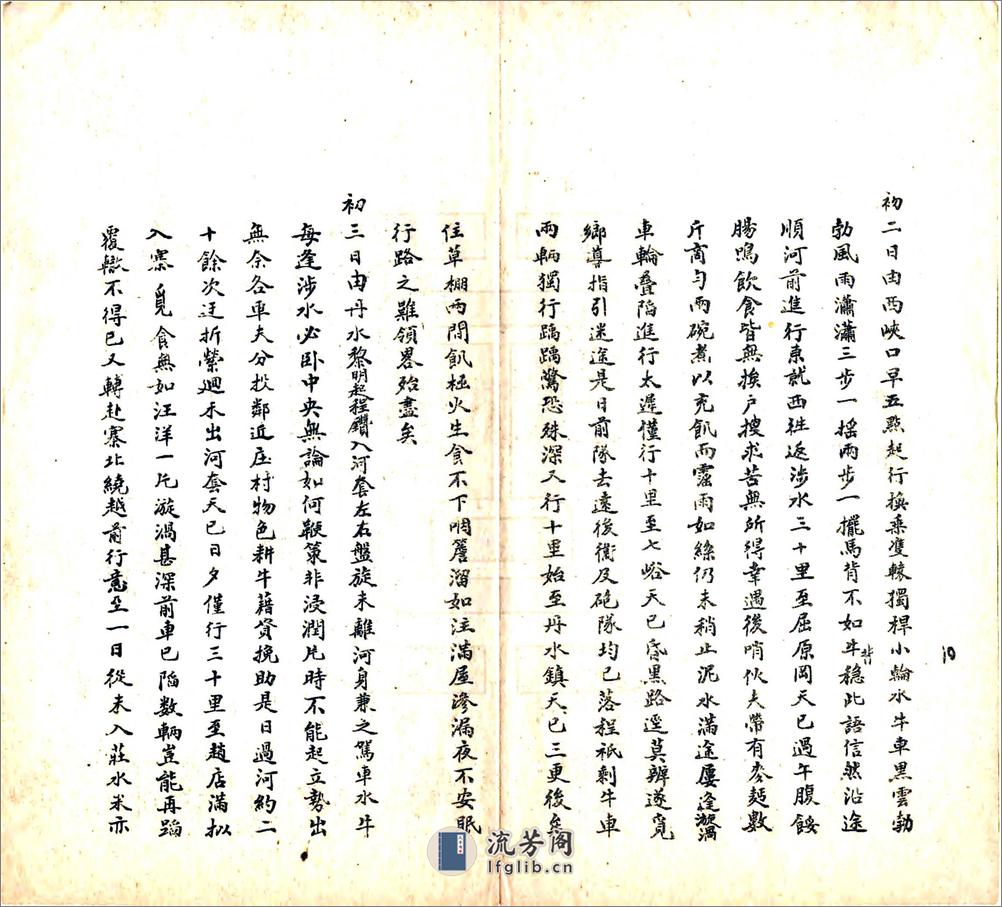 10
初二日由西峽口早五點起行換乘雙轅獨桿小輪水牛車黑雲勃
勃風雨瀟瀟三步一搖兩步一擺馬背不如牛背穩此語信然沿途
順河前進行東就西往返涉水三十里至屈原岡天已過午腹餒
腸鳴飲食皆無挨戶搜求苦無所得幸遇後哨伙夫帶有麥麵數
斤商勻兩碗煮以充飢而靈雨如絲仍未稍止泥水滿途屢逢漩渦
車輪疊陷進行太遲僅行十里至七峪天已昏黑路逕莫辨遂覓
鄉導指引迷途是日前隊去遠後衛及砲隊均已落程祇剩牛車
兩輛獨行踽踽驚恐殊深又行十里始至丹水鎮天已三更後矣
住草棚兩間飢極火生食不下咽簷溜如注滿屋滲漏夜不安眠
行路之難領畧殆盡矣
初三日由丹水黎明起程鑽入河套左右盤旋未離河身兼之駕車水牛
每逢涉水必卧中央無論如何鞭策非浸潤片時不能起立勢出
無奈各車夫分投鄰近庄村物色耕牛藉資挽助是日過河約二
十餘次迂折縈迴未出河套天已日夕僅行三十里至趙店滿拟
入寨覓食無如汪洋一片漩渦甚深前車已陷數輛豈能再蹈
覆轍不得已又轉赴寨北繞越前行竟至一日從未入莊水米亦
流芳閣
lfglib.cn